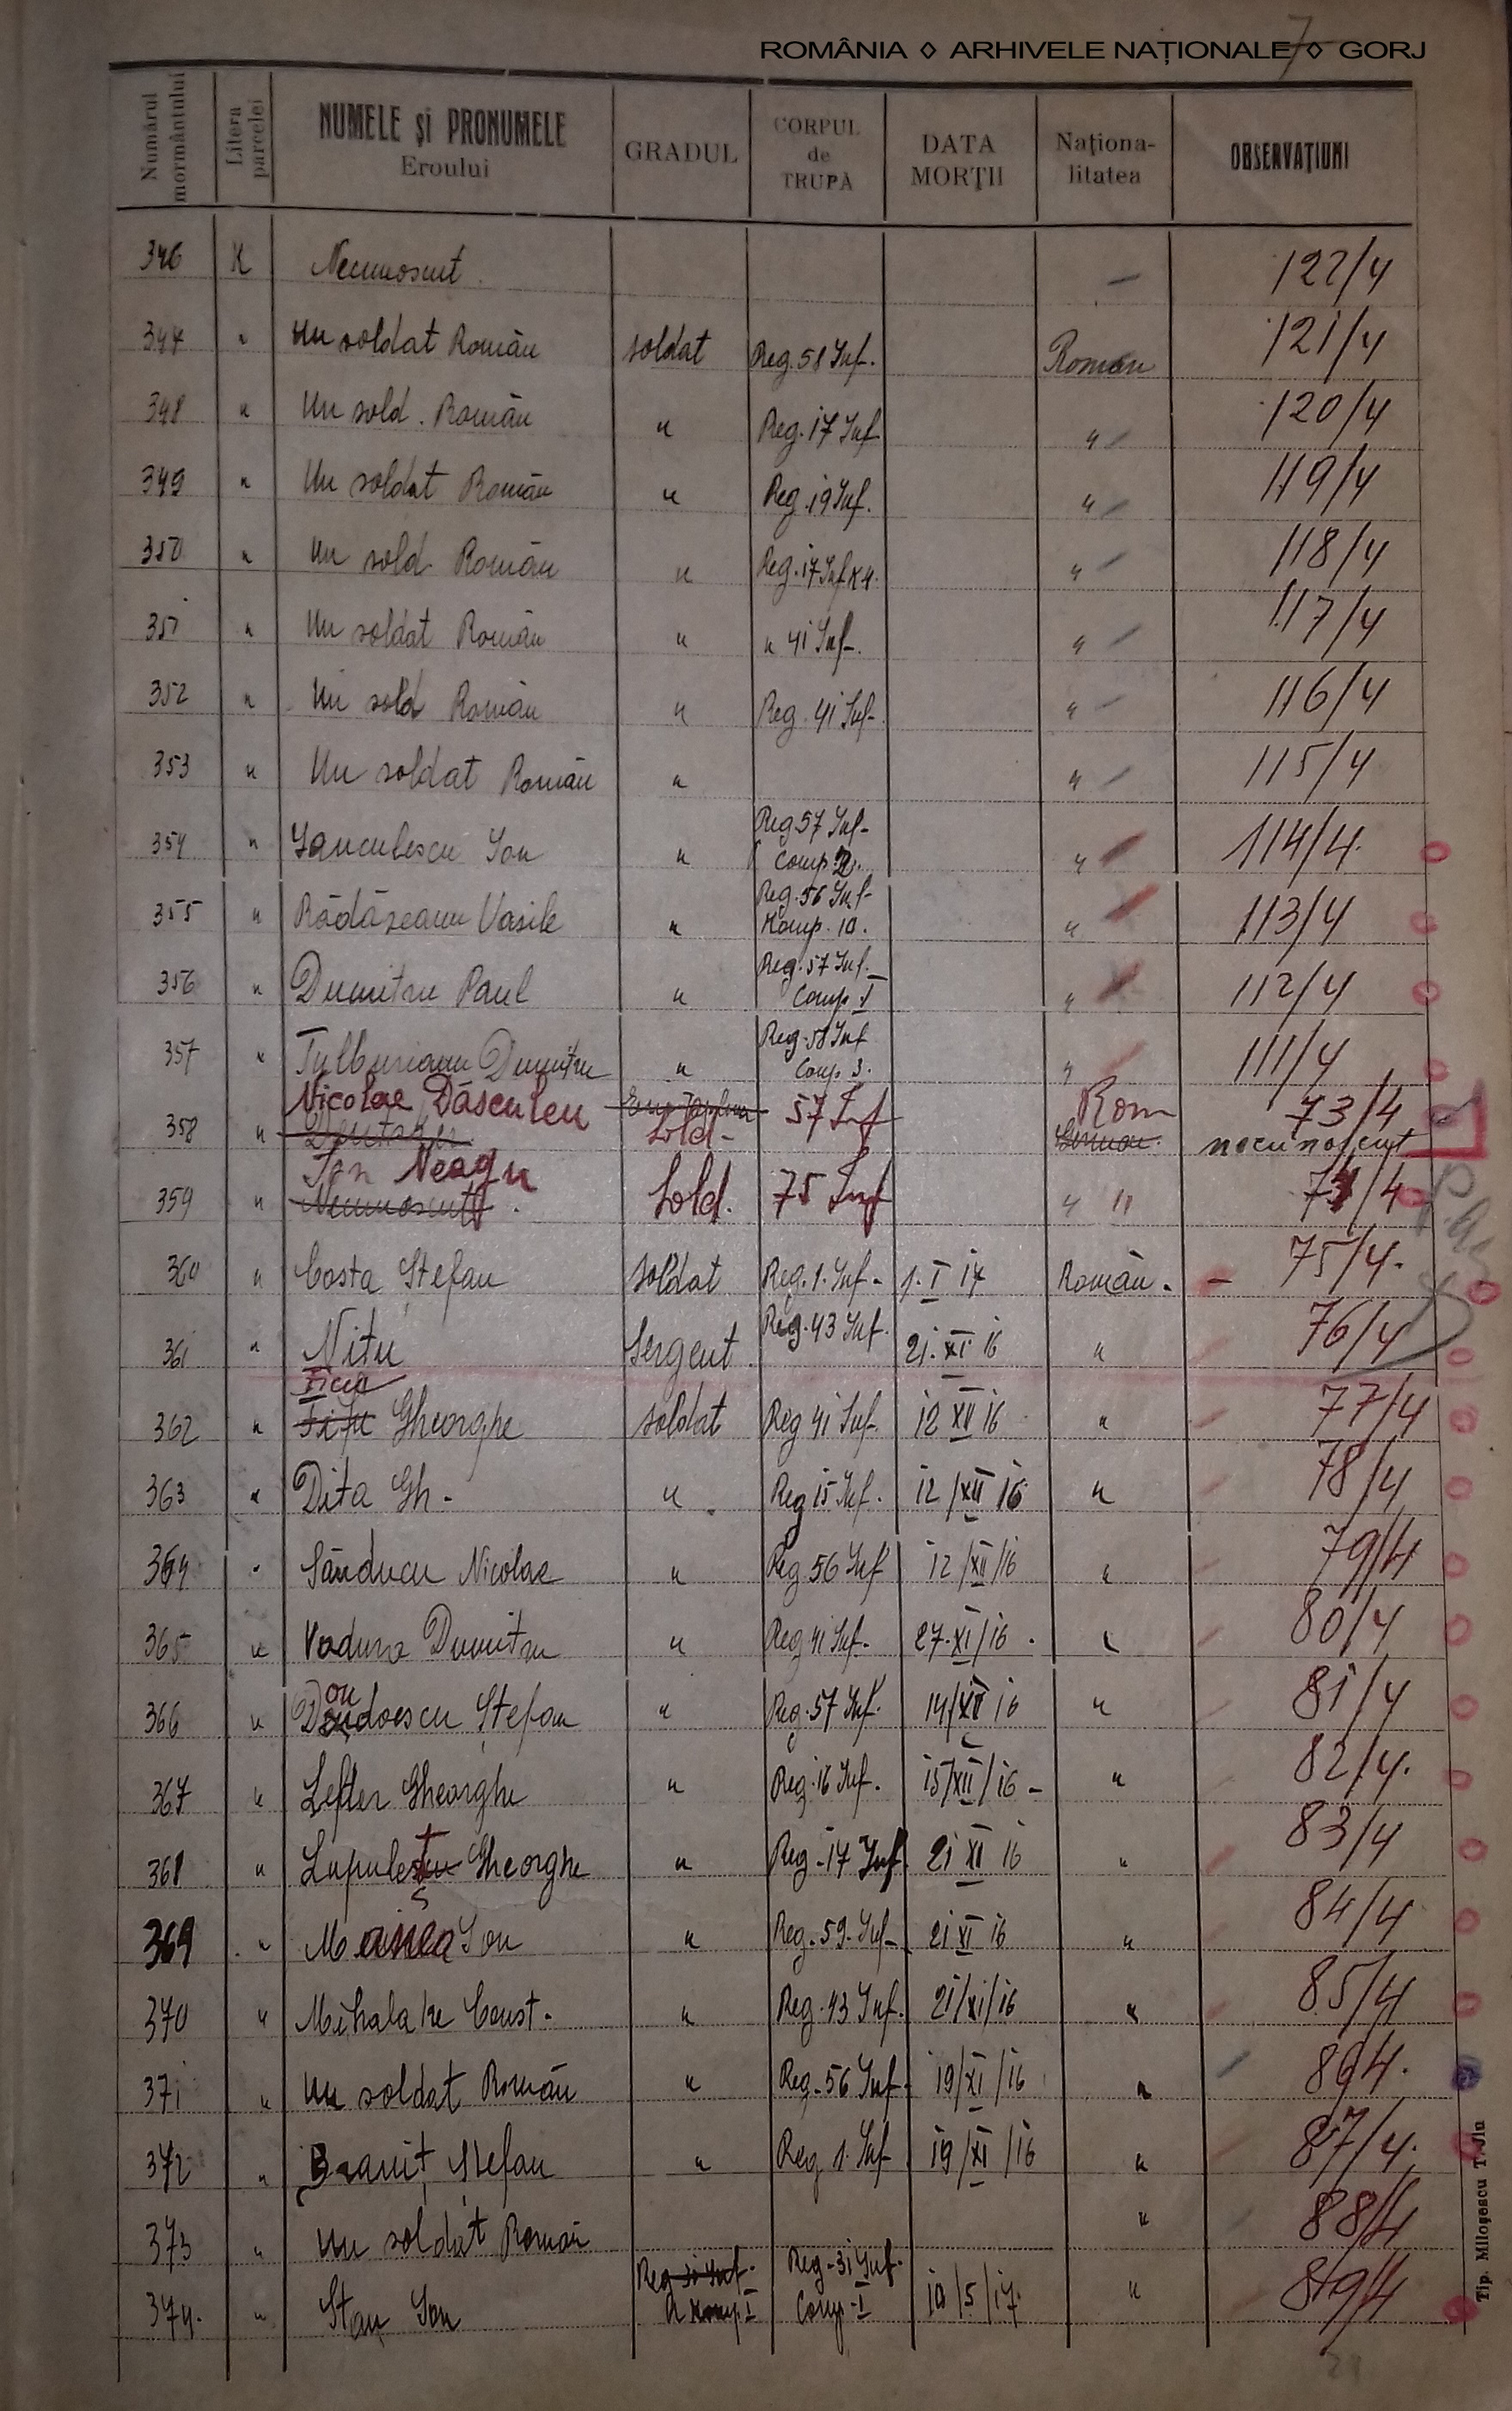 7
ROMÂNIA ◊ ARHIVELE NAȚIONALE ◊ GORJ
Numărul mormântului | Litera parcelei | NUMELE și PRONUMELE Eroului | GRADUL | CORPUL de TRUPĂ | DATA MORȚII | Naționalitatea | OBSERVAȚIUNI
346 K Necunoscut 122/4
347 " Un soldat Român soldat Reg. 58 Inf. Roman 121/4
348 " Un sold. Român " Reg. 17 Inf " 120/4
349 " Un soldat Român " Reg. 19 Inf. " 119/4
350 " Un sold. Român " Reg. 17 Inf K 4. " 118/4
351 " Un soldat Român " " 41 Inf. " 117/4
352 " Un sold Român " Reg. 41 Inf. " 116/4
353 " Un soldat Român " " 115/4
354 " Ianculescu Ion " Reg 57 Inf. Comp. 2. " 114/4.
355 " Vasile " Reg. 56 Inf. Komp. 10. " 113/4
356 " Dumitru Paul " Reg. 57 Inf. Comp. I " 112/4
357 " Dumitru " Reg. 58 Inf Comp. 3. " 111/4
358 " Nicolae Dăsculeu Sold- 57 Inf Rom German 73/4 necunoscut
359 " Ion Neagu Necunoscut Sold. 75 Inf " " 74/4
360 " Costa Ștefan soldat Reg. 1. Inf. 1. I 17 Român. - 75/4.
361 " Nitu Sergent Reg. 43 Inf. 21. XI 16 " 76/4
362 " Gheorghe soldat Reg 41 Inf. 12 XII 16 " 77/4
363 " Dita Gh. " Reg 15 Inf. 12/XII 16 " 78/4
364 " Sănducu Nicolae " Reg. 56 Inf 12/XII/16 " 79/4
365 " Vadura Dumitru " Reg 41 Inf. 27.XI/16. " 80/4
366 " Ștefan " Reg. 57 Inf. 14/XII 16 " 81/4
367 " Lefter Gheorghe " Reg. 16 Inf. 15/XII/16 - " 82/4.
368 " Gheorghe " Reg. 17 Inf. 21 XI 16 " 83/4
369 " Manea Ion " Reg. 59. Inf. 21 XI 16 " 84/4
370 " Mihalake Const. " Reg. 43 Inf. 21/XI/16 " 85/4
371 " Un soldat Român " Reg. 56 Inf. 19/XI/16 " 86/4.
372 " Ștefan " Reg. 1. Inf 19/XI/16 " 87/4.
373 " Un soldat Roman " 88/4
374. " Stan Ion Reg 31 Inf. Komp. I Reg. 31 Inf. Comp. I 10/5/17. " 89/4
Tip. Miloșescu T. Jiu